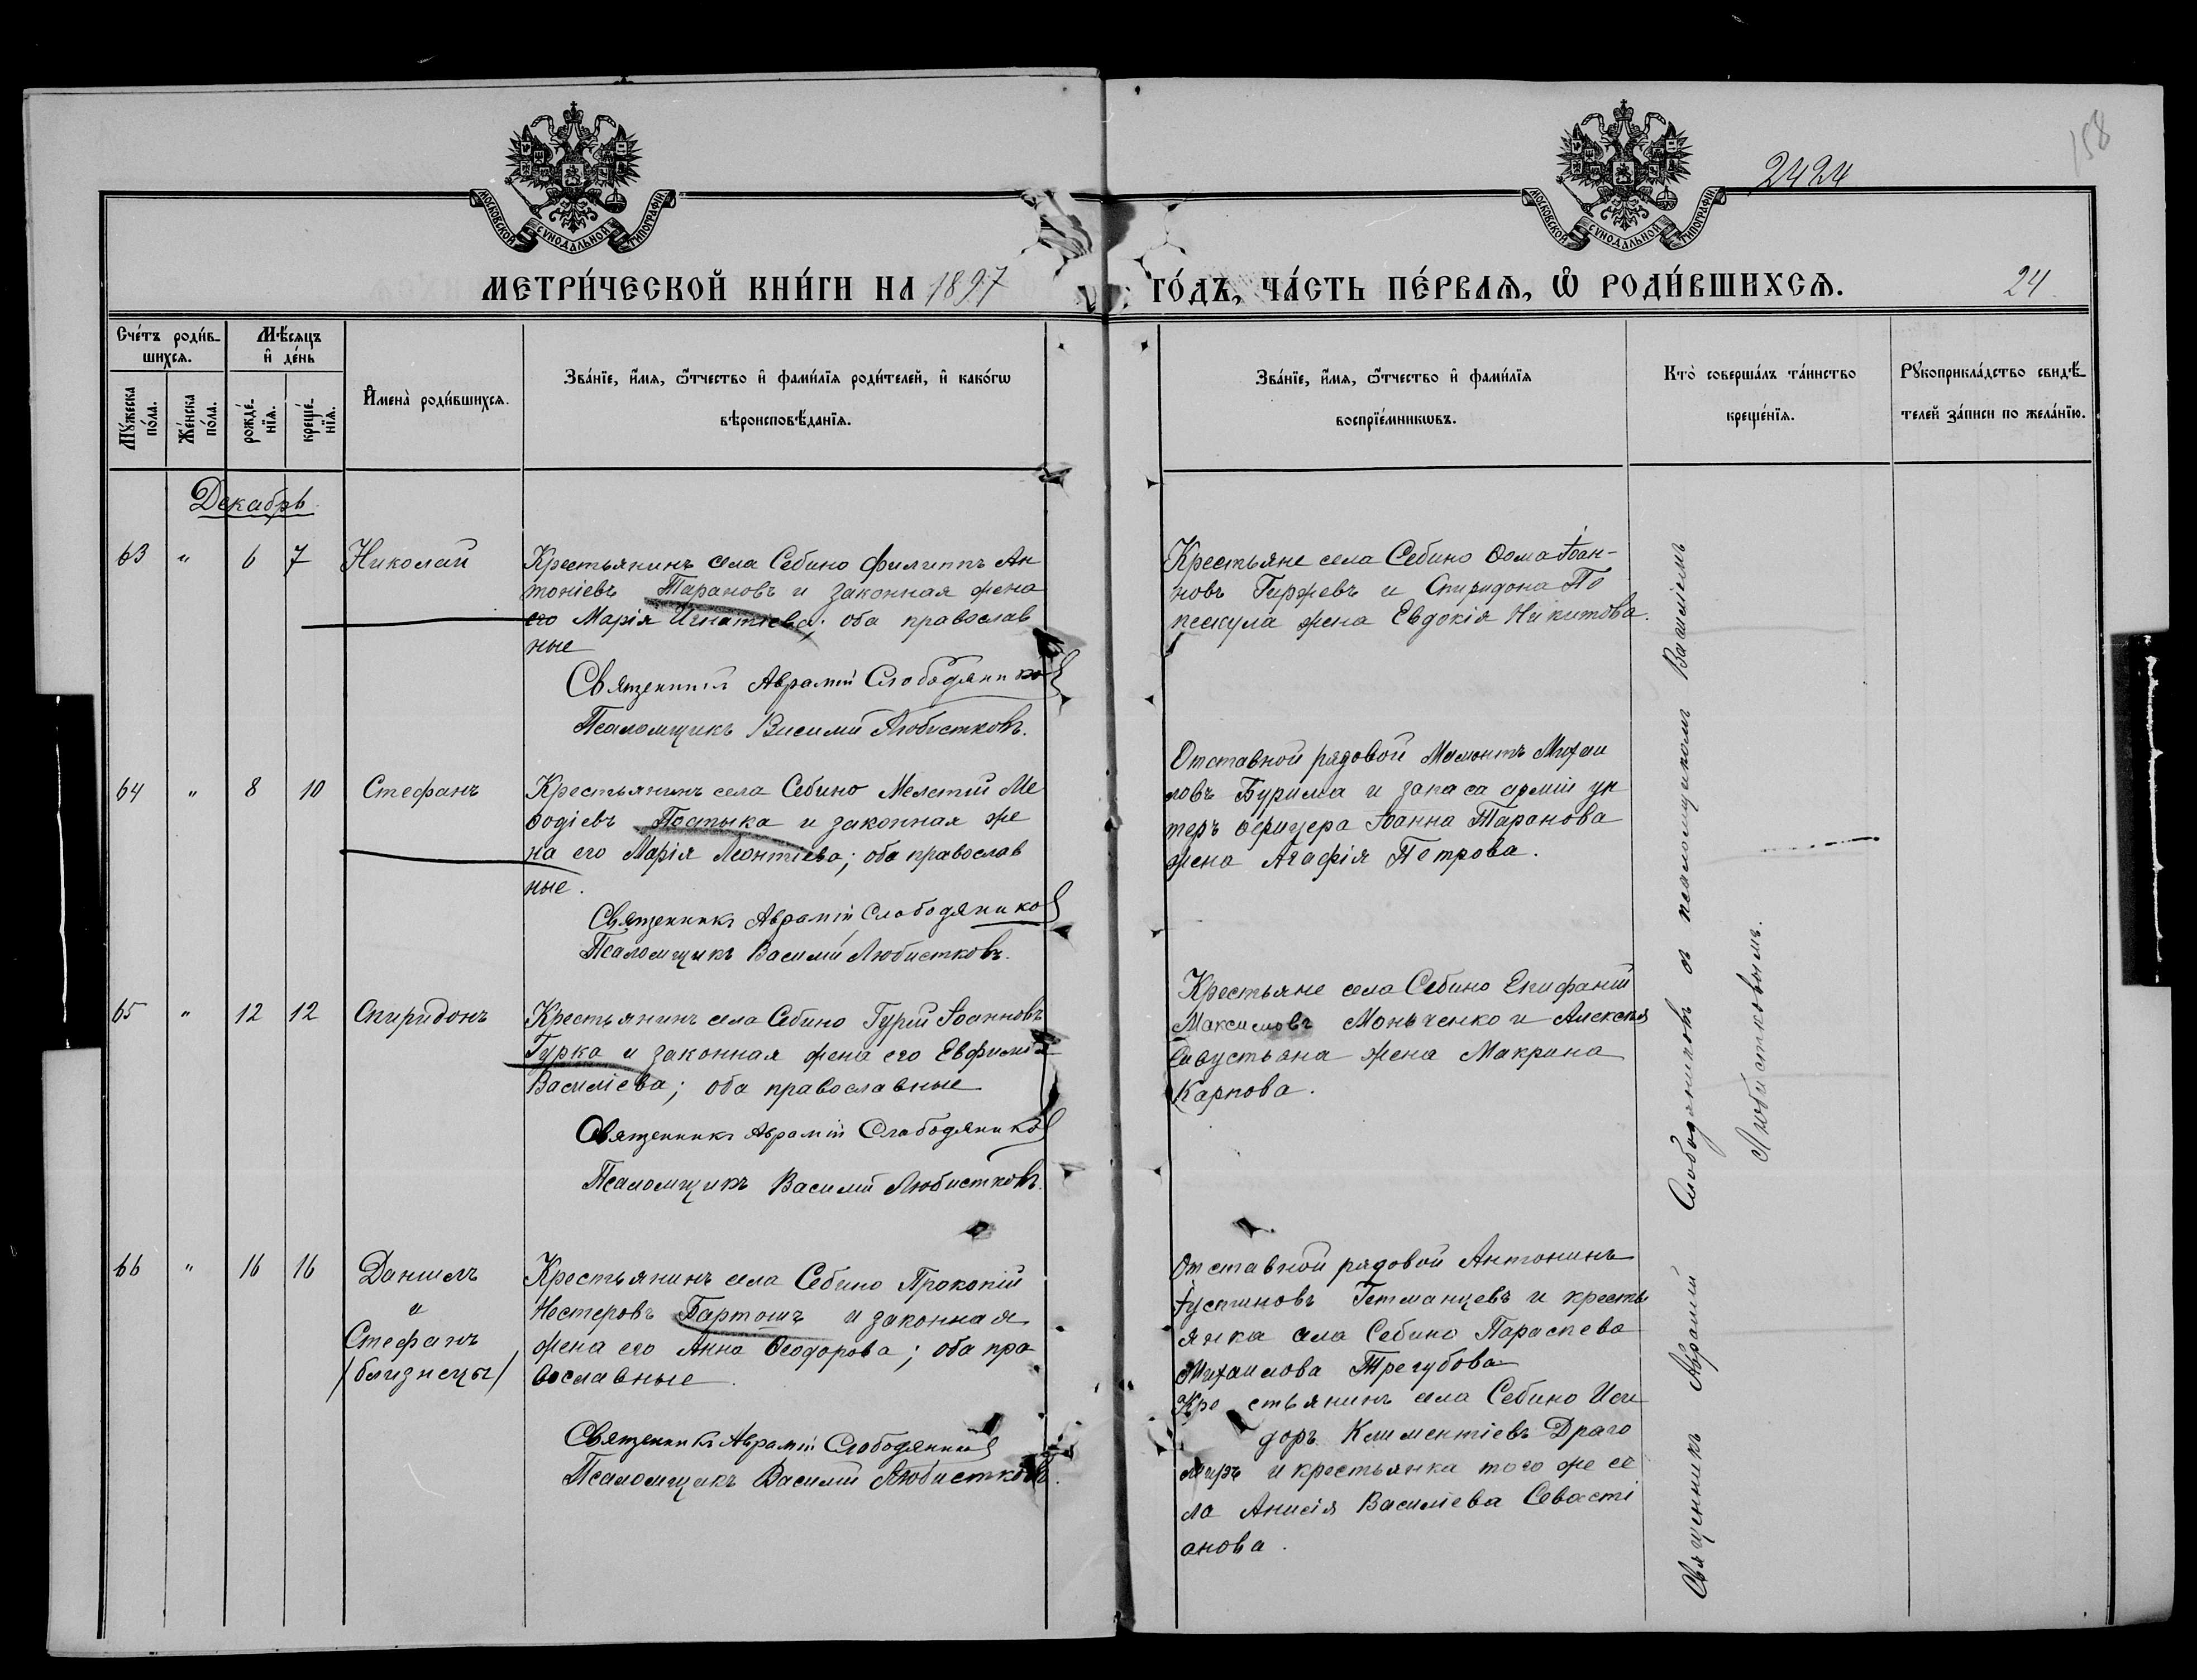 158
2424
МОСКОВСКОЙ СѴНОДАЛЬНОЙ ТИПОГРАФІИ
МОСКОВСКОЙ СѴНОДАЛЬНОЙ ТИПОГРАФІИ
МЕТРИ́ЧЕСКОЙ КНИ́ГИ НА 1897 ГО́ДЪ, ЧА́СТЬ ПЕ́РВАѦ, Ѡ҆ РОДИ́ВШИХСѦ.
24
Сче́тъ роди́в-
шихсѧ.
Мꙋ́жеска по́ла.
Же́нска по́ла.
Мѣ́сѧцъ
и҆ де́нь
рожде́-
нїѧ.
креще́-
нїѧ.
И҆мена̀ роди́вшихсѧ.
Зва́нїе, и҆́мѧ, ѻ҆́тчество и҆ фами́лїѧ роди́телей, и҆ како́гѡ
вѣроисповѣ́данїѧ.
Зва́нїе, и҆́мѧ, ѻ҆́тчество и҆ фами́лїѧ
воспрїе́мникѡвъ.
Кто̀ соверша́лъ та́инство
креще́нїѧ.
Рꙋкоприкла́дство свидѣ́-
телей за́писи по жела́нїю.
Декабрь
63 " 6 7 Николай
Крестьянинъ села Себино Филиппъ Ан
тоніевъ Тарановъ и законная жена
его Марія Игнатіева; оба православ
ные
Священникъ Аврамій Слободяниковъ
Псаломщикъ Василій Любистковъ.
Крестьяне села Себино Ѳома Іоан-
новъ Гиржевъ и Спиридона По
пескула жена Евдокія Никитова.
64 " 8 10 Стефанъ
Крестьянинъ села Себино Мелетій Ме
ѳодіевъ Постыка и законная же
на его Марія Леонтіева; оба православ
ные.
Священникъ Аврамій Слободяниковъ
Псаломщикъ Василій Любистковъ.
Отставной рядовой Мамонтъ Михаи
ловъ Бурима и запаса арміи ун
теръ офицера Іоанна Таранова
жена Агафія Петрова.
65 " 12 12 Спиридонъ
Крестьянинъ села Себино Гурій Іоанновъ
Гурка и законная жена его Евфимія
Василіева; оба православные
Священникъ Аврамій Слободяниковъ
Псаломщикъ Василій Любистковъ.
Крестьяне села Себино Епифаній
Максимовъ Моньченко и Алексія
Савустьяна жена Макрина
Карпова.
66 " 16 16 Даниилъ
и
Стефанъ
/близнецы/
Крестьянинъ села Себино Прокопій
Нестеровъ Бартошъ и законная
жена его Анна Ѳеодорова; оба пра
вославные.
Священникъ Аврамій Слободяниковъ
Псаломщикъ Василій Любистковъ.
Отставной рядовой Антонинъ
Іустиновъ Гетманцевъ и кресть
янка села Себино Параскева
Михаилова Трегубова
Крестьянинъ села Себино Иси
доръ Климентіевъ Драго
миръ и крестьянка того же се
ла Анисія Василіева Севасті
анова.
Священникъ Аврамій Слободяниковъ съ псаломщикомъ Василіемъ
Любистковымъ.